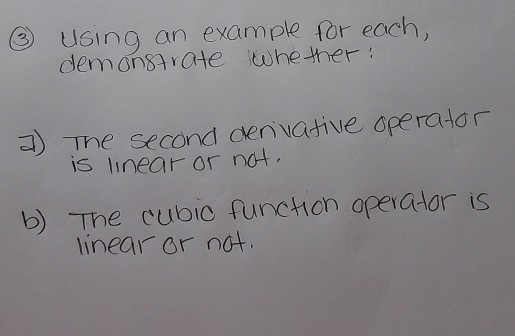 ③ Using an example for each,
demonstrate whether:
a) The second derivative operator
is linear or not.
b) The cubic function operator is
linear or not.